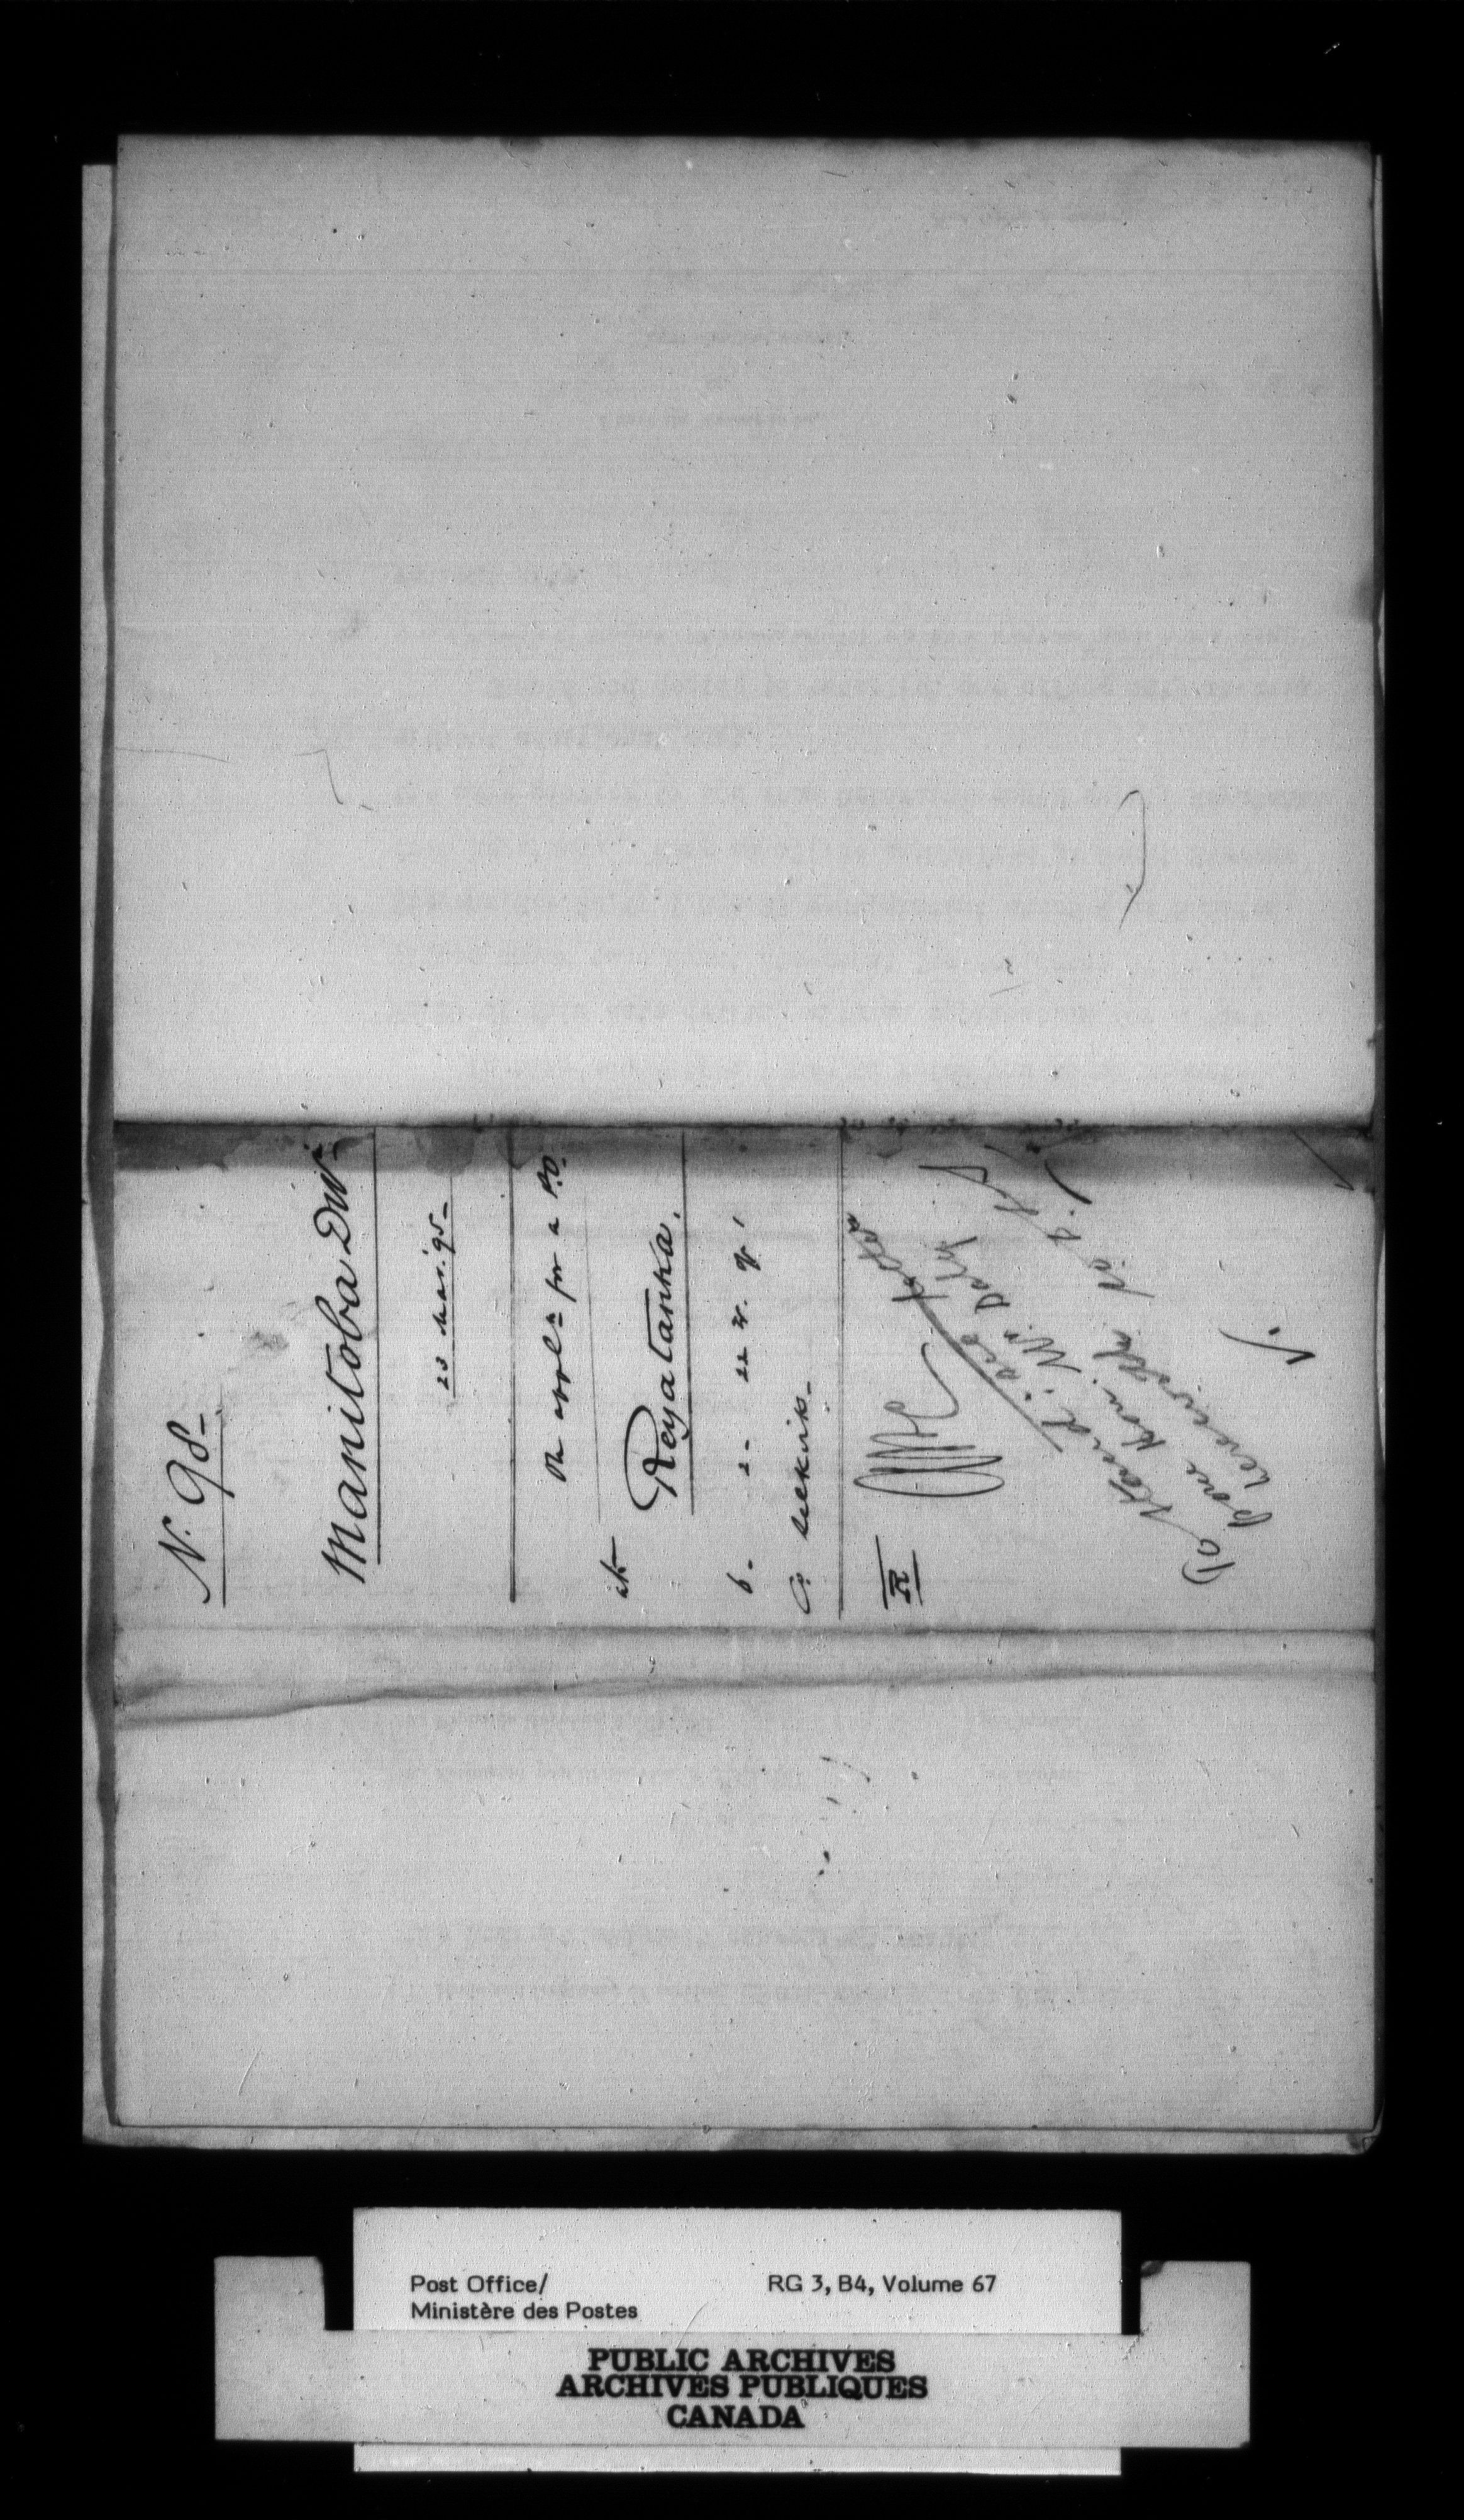 N. 98-
Manitoba Div
23 Mar. '95-
On appln for a P.O.
at
Reyatanka.
6- 2- 22 W. of 1
Co. Selkirk-
R
Mr. Daly
herewith
V.
Post Office/
Ministère des Postes
RG 3, B4, Volume 67
PUBLIC ARCHIVES
ARCHIVES PUBLIQUES
CANADA